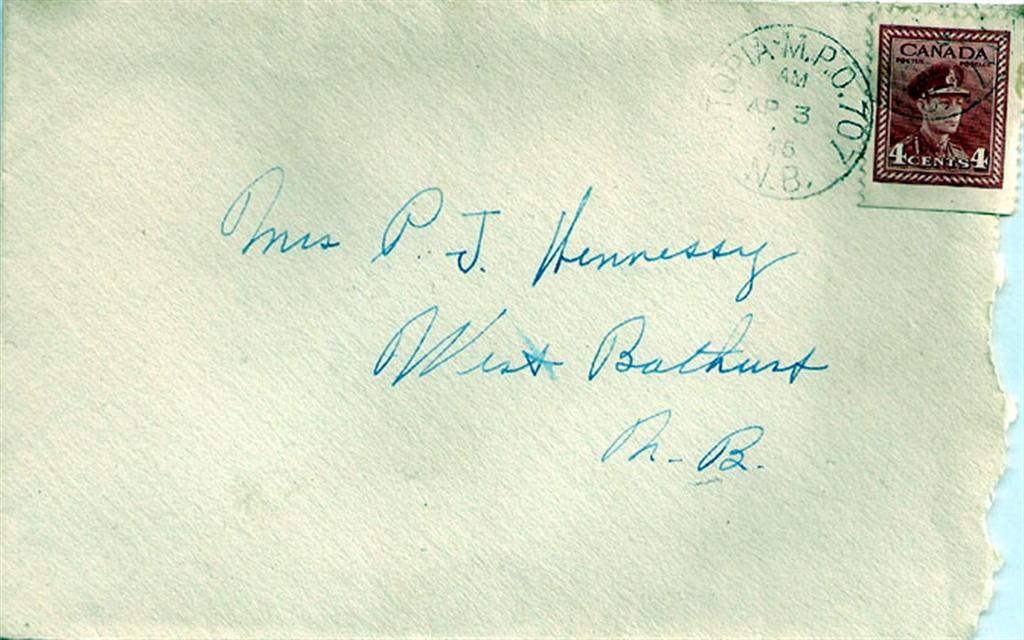 TOPIA-M.P.O. 707
AM
AP 3
45
N.B.
CANADA
POSTES POSTAGE
4 CENTS 4
Mrs P. J. Hennessy
West Bathurst
N-B.